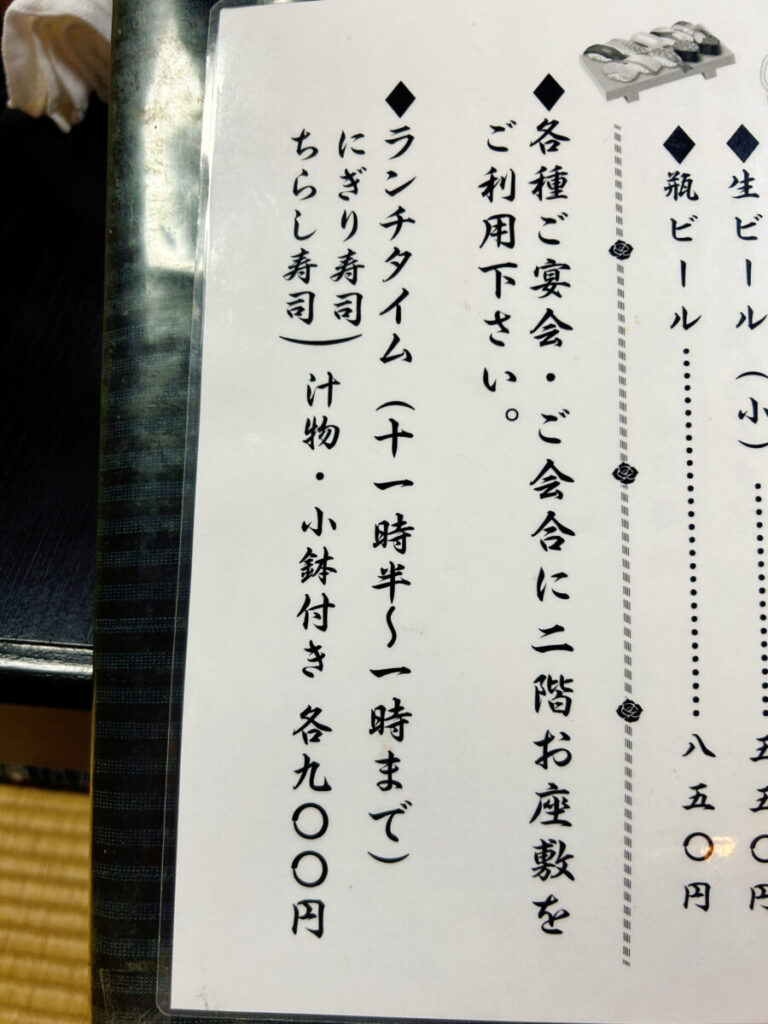 ◆生ビール（小）………………五五〇円
◆瓶ビール………………………八五〇円
◆各種ご宴会・ご会合に二階お座敷を
ご利用下さい。
◆ランチタイム（十一時半～一時まで）
にぎり寿司
ちらし寿司）汁物・小鉢付き 各九〇〇円